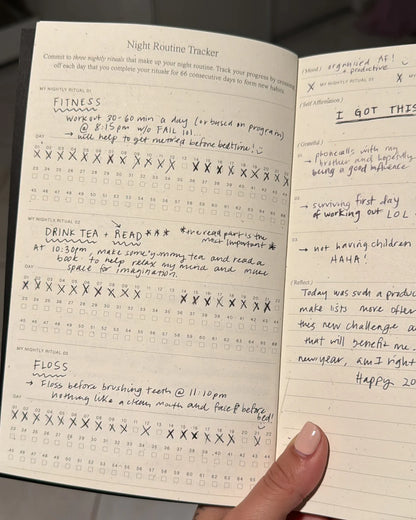 Night Routine Tracker
Commit to three nightly rituals that make up your night routine. Track your progress by crossing
off each day that you complete your rituals for 66 consecutive days to form new habits.
MY NIGHTLY RITUAL 01
FITNESS
workout 30-60 min a day (or based on program)
@ 8:15pm w/o FAIL lol...
→ will help to get me tired before bedtime!
DAY
01 02 03 04 05 06 07 08 09 10 11 12 13 14 15 16 17 18 19 20 21 22
23 24 25 26 27 28 29 30 31 32 33 34 35 36 37 38 39 40 41 42 43 44
45 46 47 48 49 50 51 52 53 54 55 56 57 58 59 60 61 62 63 64 65 66
MY NIGHTLY RITUAL 02
DRINK TEA + READ*** *the read part is the
most important *
At 10:30pm, make some yummy tea and read a
book to help relax my mind and make
space for imagination.
DAY
01 02 03 04 05 06 07 08 09 10 11 12 13 14 15 16 17 18 19 20 21 22
23 24 25 26 27 28 29 30 31 32 33 34 35 36 37 38 39 40 41 42 43 44
45 46 47 48 49 50 51 52 53 54 55 56 57 58 59 60 61 62 63 64 65 66
MY NIGHTLY RITUAL 03
FLOSS
→ Floss before brushing teeth @ 11:10pm
nothing like a clean mouth and face before
bed!
DAY
01 02 03 04 05 06 07 08 09 10 11 12 13 14 15 16 17 18 19 20 21 22
23 24 25 26 27 28 29 30 31 32 33 34 35 36 37 38 39 40 41 42 43 44
45 46 47 48 49 50 51 52 53 54 55 56 57 58 59 60 61 62 63 64 65 66
(Mood) organized AF!
+ productive
X MY NIGHTLY RITUAL 01 X
(Self Affirmation)
I GOT THIS
(Grateful)
01 → phonecalls with my
brother and hopefully
being a good influence
02 → surviving first day
of working out LOL
03 → not having children
HAHA!
(Reflect)
Today was such a produc
make lists more often
this new challenge a
that will benefit me.
new year, am I right
Happy 20